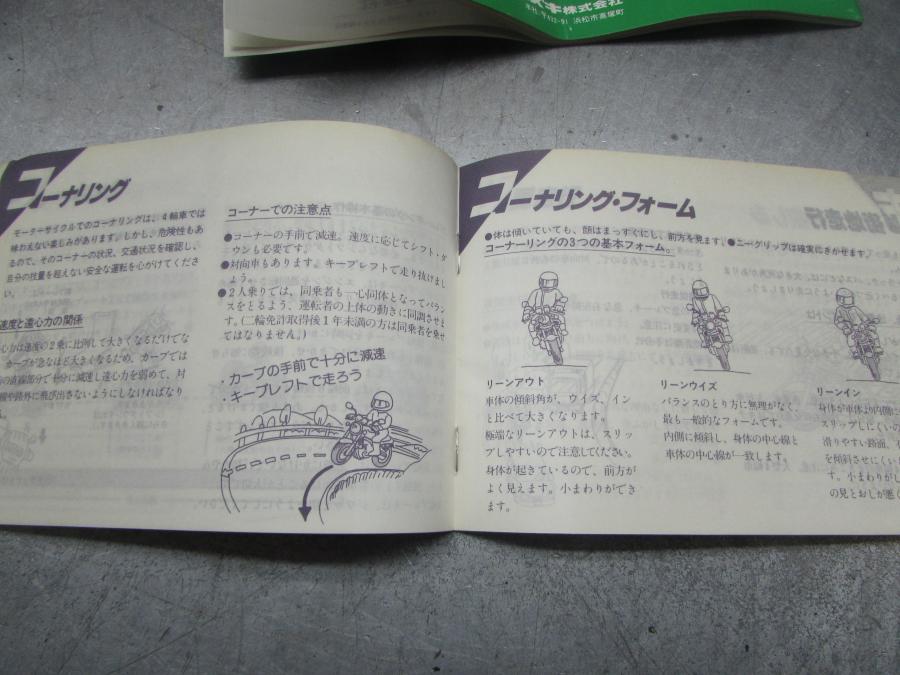 ズキ株式会社
本社・〒432-91 浜松市高塚町
コーナリング
モーターサイクルでのコーナリングは、4輪車では
味わえない楽しみがあります。しかし、危険性もあ
るので、そのコーナーの状況、交通状況を確認し、
自分の技量を超えない安全な運転を心がけてくださ
い。
速度と遠心力の関係
心力は速度の2乗に比例して大きくなるだけでな
カーブが急なほど大きくなるため、カーブでは
の直線部分で十分に減速し遠心力を弱めて、対
線や路外に飛び出さないようにしなければなり
コーナーでの注意点
●コーナーの手前で減速。速度に応じてシフト・ダ
ウンも必要です。
●対向車もあります。キープレフトで走り抜けまし
ょう。
●2人乗りでは、同乗者も一心同体となってバラン
スをとるよう、運転者の上体の動きに同調させま
す。(二輪免許取得後1年未満の方は同乗者を乗せ
てはなりません。)
・カーブの手前で十分に減速
・キープレフトで走ろう
コーナリング・フォーム
●体は傾いていても、顔はまっすぐにし、前方を見ます。●ニーグリップは確実にきかせます。
コーナーリングの3つの基本フォーム。
リーンアウト
車体の傾斜角が、ウイズ、イン
と比べて大きくなります。
極端なリーンアウトは、スリッ
プしやすいので注意してください。
身体が起きているので、前方が
よく見えます。小まわりができ
ます。
リーンウイズ
バランスのとり方に無理がなく、
最も一般的なフォームです。
内側に傾斜し、身体の中心線と
車体の中心線が一致します。
リーンイン
身体が車体より内側に
スリップしにくいの
滑りやすい路面、
を傾斜させにくい
す。小まわりがし
の見とおしが悪く